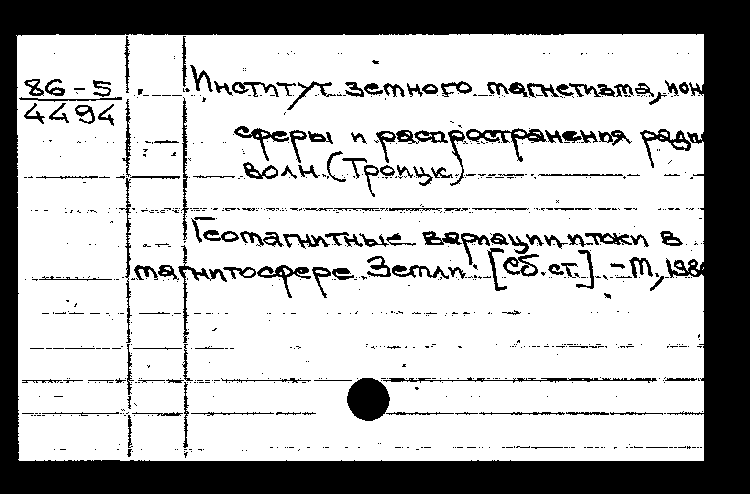 86-5
4494
Институт земного магнетизма, ионо
сферы и распространения радио
волн (Троицк)
Геомагнитные вариации и токи в
магнитосфере Земли: [Сб. ст.]. - М., 198